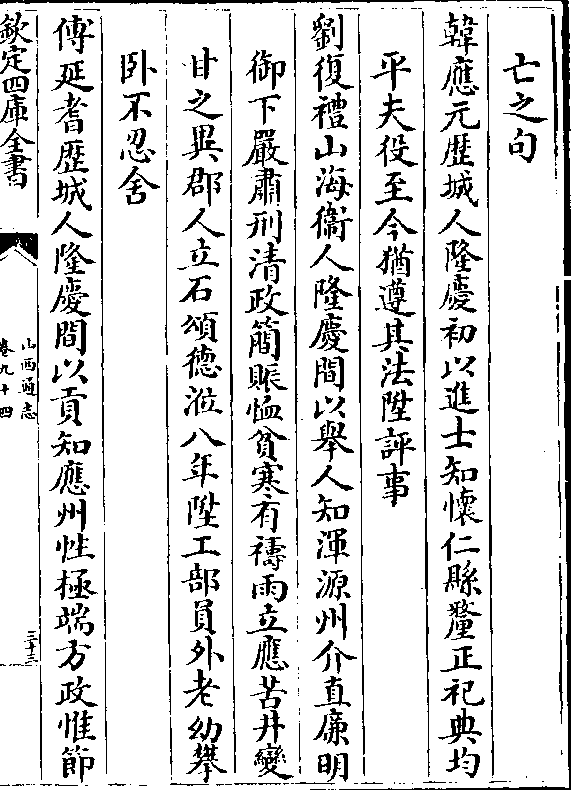 亡之句
韓應元歷城人隆慶初以進士知懷仁縣釐正祀典均
平夫役至今猶遵其法陞評事
劉復禮山海衞人隆慶間以舉人知渾源州介直廉明
御下嚴肅刑清政簡賑恤貧寒有禱雨立應苦井變
甘之異郡人立石頌德涖八年陞工部員外老幼攀
卧不忍舍
傅延耆歷城人隆慶間以貢知應州性極端方政惟節
欽定四庫全書
山西通志
卷九十四
三十三